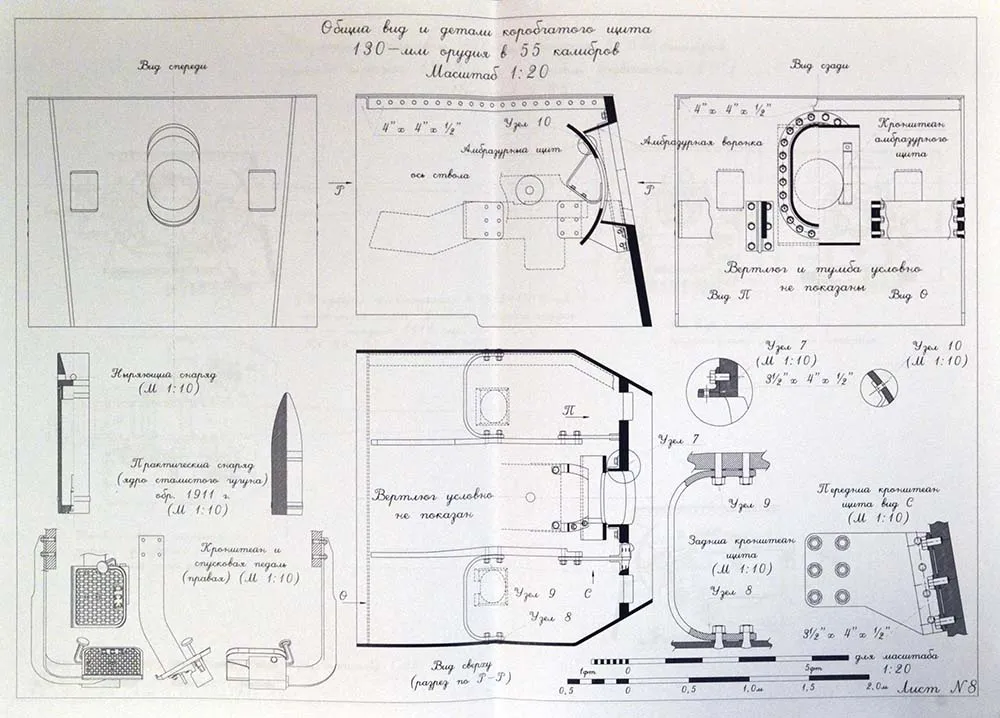 Общий вид и детали коробчатого щита
130-мм орудия в 55 калибров
Масштаб 1:20
Вид спереди
Вид сзади
4" x 4" x 1/2"
Узел 10
Амбразурный щит
ось ствола
Р
Р
4" x 4" x 1/2"
Амбразурная воронка
Кронштейн
амбразурного
щита
Вертлюг и тумба условно
не показаны
Вид П
Вид О
Ныряющий снаряд
(М 1:10)
Практический снаряд
(ядро сталистого чугуна)
обр. 1911 г.
(М 1:10)
П
Узел 7
(М 1:10)
3 1/2" x 4" x 1/2"
Узел 10
(М 1:10)
Узел 7
Вертлюг условно
не показан
Узел 9
Передний кронштейн
щита вид С
(М 1:10)
Кронштейн и
спусковая педаль
(правая) (М 1:10)
О
Узел 9
С
Узел 8
Задний кронштейн
щита
(М 1:10)
Узел 8
3 1/2" x 4" x 1/2"
Вид сверху
(разрез по Р-Р)
1фт 0 5фт
для масштаба
1:20
0,5 0 0,5 1,0м 1,5 2,0м
Лист N8